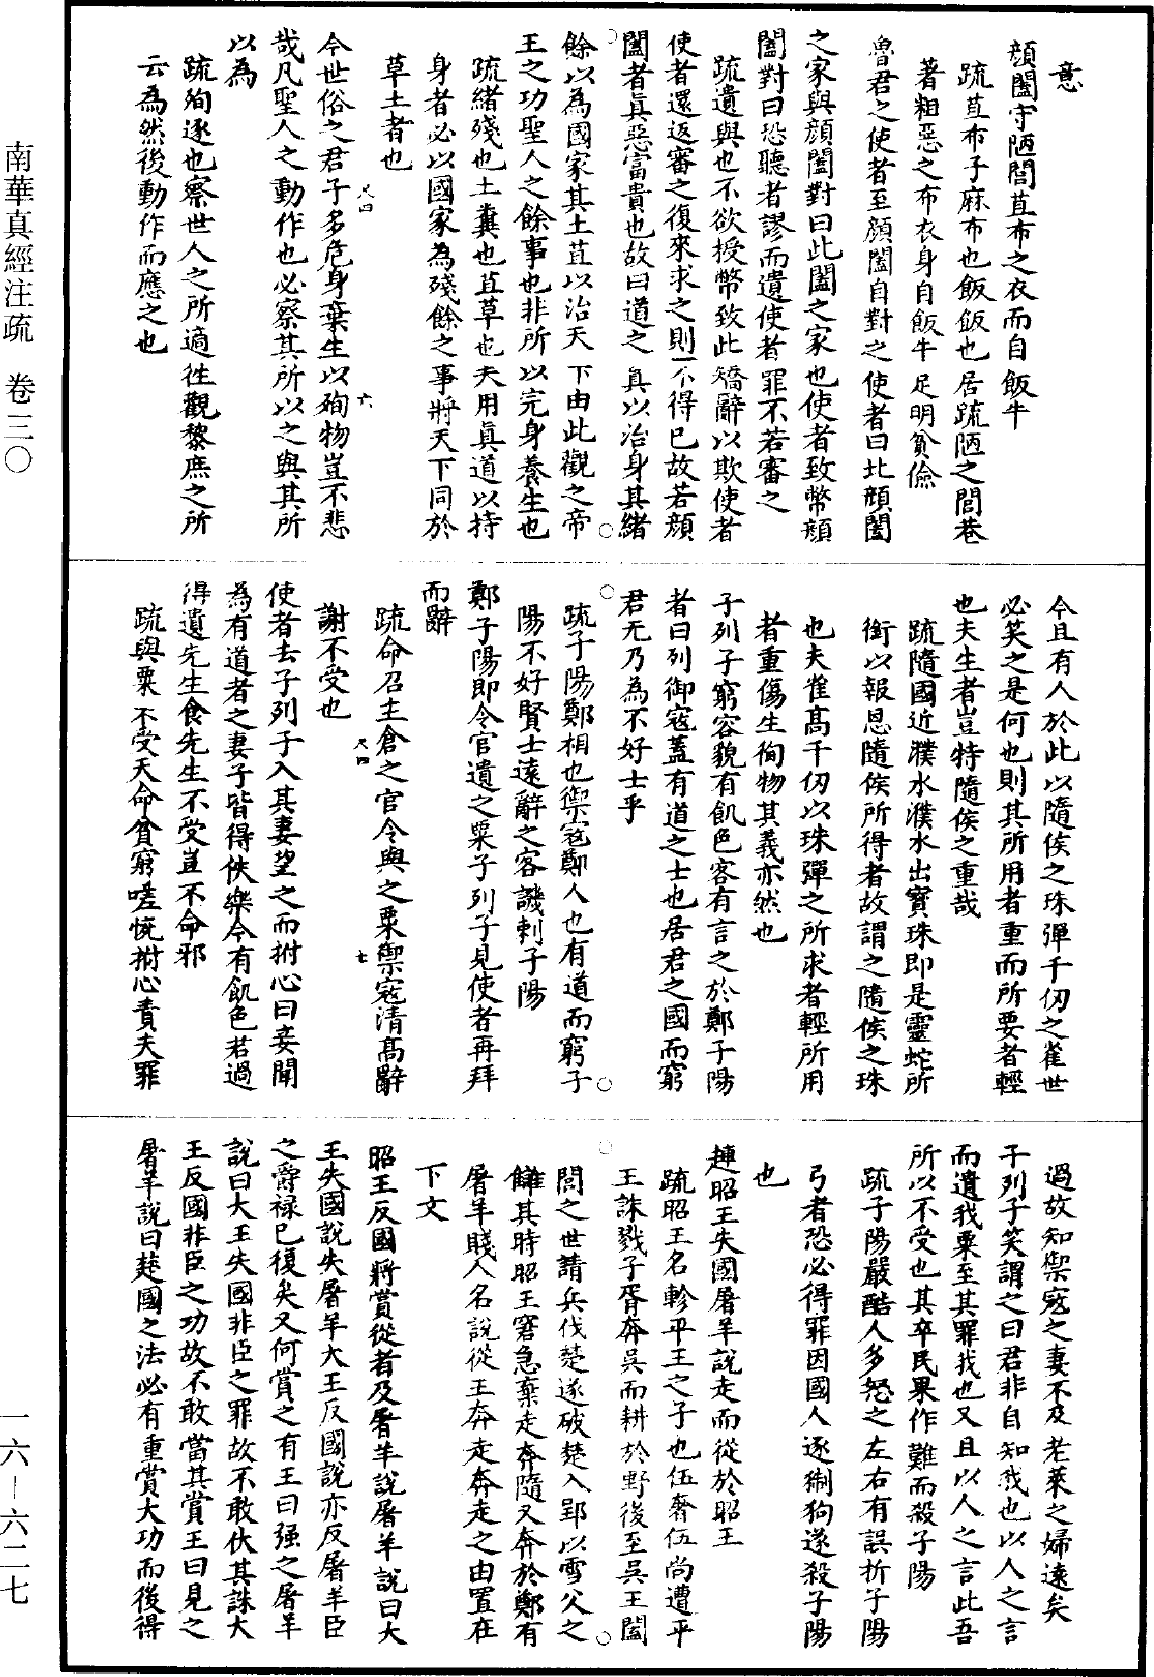 意
顏闔守陋閭苴布之衣而自飯牛
疏苴布子麻布也飯飯也居疏陋之閭巷
著粗惡之布衣身自飯牛足明貧儉
魯君之使者至顏闔自對之使者曰此顏闔
之家與顏闔對曰此闔之家也使者致幣顏
闔對曰恐聽者謬而遺使者罪不若審之
疏遺與也不欲授幣致此矯辭以欺使者
使者還返審之復來求之則不得已故若顏
闔者真惡富貴也故曰道之真以治身其緒
餘以為國家其土苴以治天下由此觀之帝
王之功聖人之餘事也非所以完身養生也
疏緒殘也土糞也苴草也夫用真道以持
身者必以國家為殘餘之事將天下同於
草土者也
今世俗之君子多危身棄生以殉物豈不悲
哉凡聖人之動作也必察其所以之與其所
以為
疏殉逐也察世人之所適往觀黎庶之所
云為然後動作而應之也
今且有人於此以隨侯之珠彈千仞之雀世
必笑之是何也則其所用者重而所要者輕
也夫生者豈特隨侯之重哉
疏隨國近濮水濮水出寶珠即是靈蛇所
銜以報恩隨侯所得者故謂之隨侯之珠
也夫雀高千仞以珠彈之所求者輕所用
者重傷生徇物其義亦然也
子列子窮容貌有飢色客有言之於鄭子陽
者曰列御寇蓋有道之士也居君之國而窮
君无乃為不好士乎
疏子陽鄭相也禦寇鄭人也有道而窮子
陽不好賢士遠辭之客譏刺子陽
鄭子陽即令官遺之粟子列子見使者再拜
而辭
疏命召主倉之官令與之粟禦寇清高辭
謝不受也
使者去子列子入其妻望之而拊心曰妾聞
為有道者之妻子皆得佚樂今有飢色君過
得遺先生食先生不受豈不命邪
疏與粟不受天命貧窮嗟惋拊心責夫罪
過故知禦寇之妻不及老萊之婦遠矣
子列子笑謂之曰君非自知我也以人之言
而遺我粟至其罪我也又且以人之言此吾
所以不受也其卒民果作難而殺子陽
疏子陽嚴酷人多怒之左右有誤折子陽
弓者恐必得罪因國人逐猘狗遂殺子陽
也
楚昭王失國屠羊說走而從於昭王
疏昭王名軫平王之子也伍奢伍尚遭平
王誅戮子胥奔吳而耕於野後至吳王闔
閭之世請兵伐楚遂破楚入郢以雪父之
讎其時昭王窘急棄走奔隨又奔於鄭有
屠羊賤人名說從王奔走奔走之由置在
下文
昭王反國將賞從者及屠羊說屠羊說曰大
王失國說失屠羊大王反國說亦反屠羊臣
之爵祿已復矣又何賞之有王曰强之屠羊
說曰大王失國非臣之罪故不敢伏其誅大
王反國非臣之功故不敢當其賞王曰見之
屠羊說曰楚國之法必有重賞大功而後得
南華真經注疏 卷三〇
一六-六二七